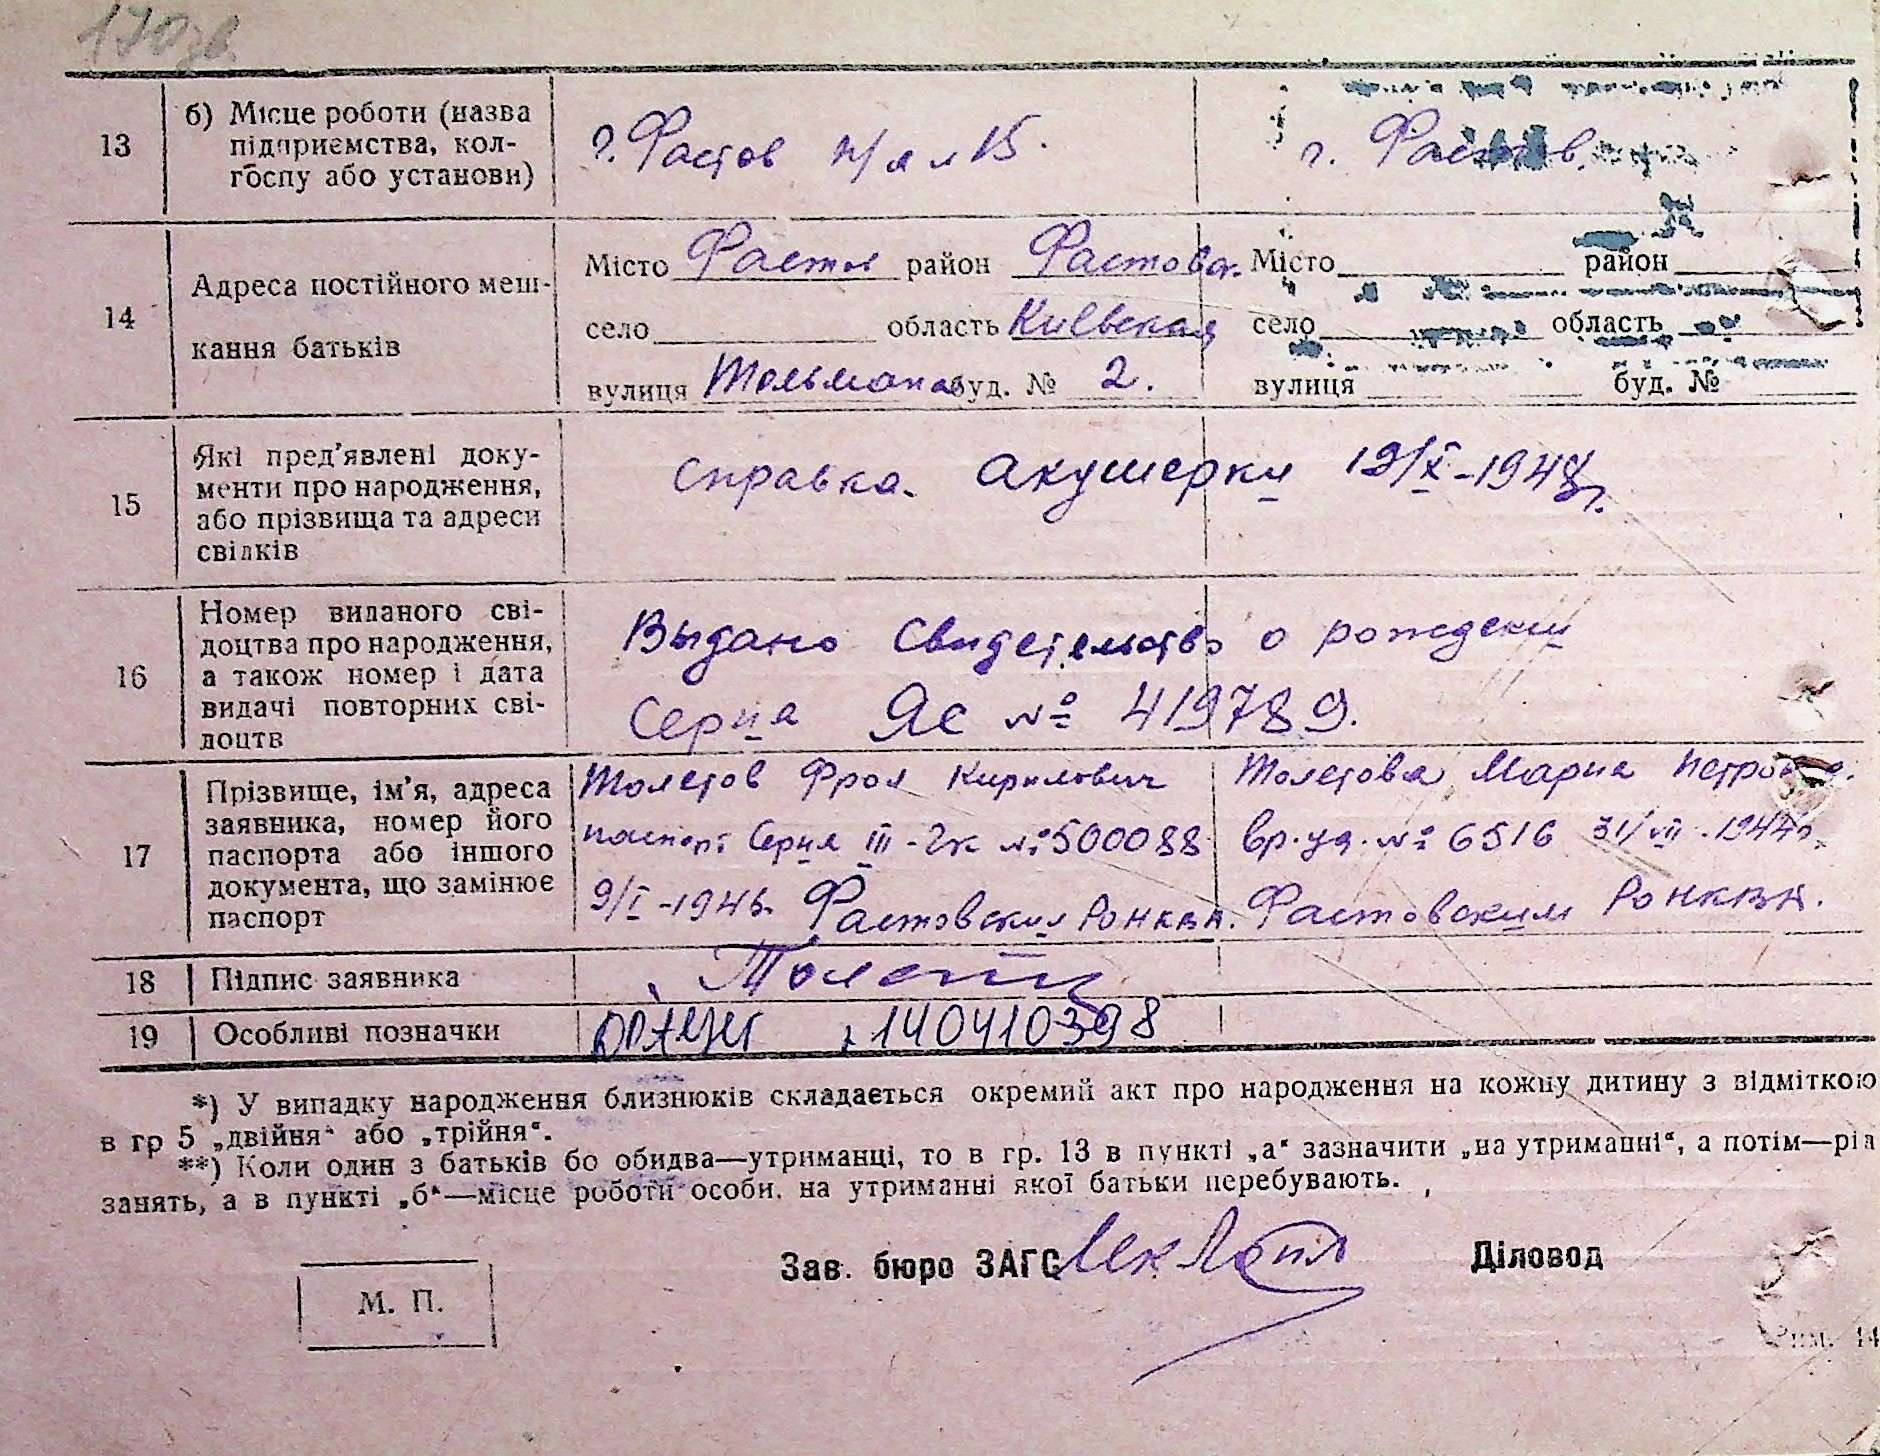 170зв.
13
б) Місце роботи (назва
підприємства, кол-
госпу або установи)
г. Фастов п/я 15.
г. Фастов.
14
Адреса постійного меш-
кання батьків
Місто Фастов район Фастовск.
село область Киевская
вулиця Тельмана буд. № 2.
Місто район
село область
вулиця буд. №
15
Які пред'явлені доку-
менти про народження,
або прізвища та адреси
свідків
Справка акушерки 19/X-1948г.
16
Номер виданого сві-
доцтва про народження,
а також номер і дата
видачі повторних сві-
доцтв
Выдано Свидетельство о рождении
Серия ЯЄ № 419789.
17
Прізвище, ім'я, адреса
заявника, номер його
паспорта або іншого
документа, що замінює
паспорт
Толстов Фрол Кирилович
паспорт Серия III-ЧК № 500088
9/I-1946. Фастовским РОНКВД.
Толстова Мария Петровна.
вр. уд. № 6516 31/VII-1944г.
Фастовским РОНКВД.
18
Підпис заявника
19
Особливі позначки
140410398
*) У випадку народження близнюків складається окремий акт про народження на кожну дитину з відміткою
в гр 5 „двійня“ або „трійня“.
**) Коли один з батьків бо обидва—утриманці, то в гр. 13 в пункті „а“ зазначити „на утриманні“, а потім—рід
занять, а в пункті „б“—місце роботи особи, на утриманні якої батьки перебувають.
Зав. бюро ЗАГС
Діловод
М. П.